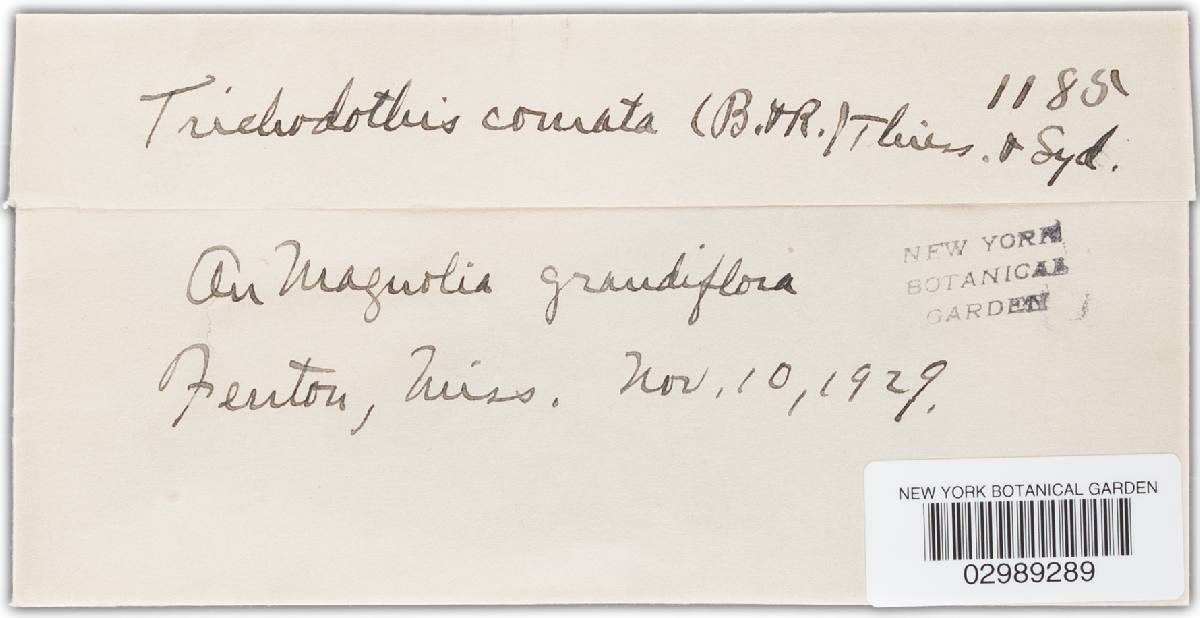 1185
Trichodothis comata (B. & R.) Theiss. & Syd.
On Magnolia grandiflora
Fenton, Miss. Nov. 10, 1929.
NEW YORK
BOTANICAL
GARDEN
NEW YORK BOTANICAL GARDEN
02989289